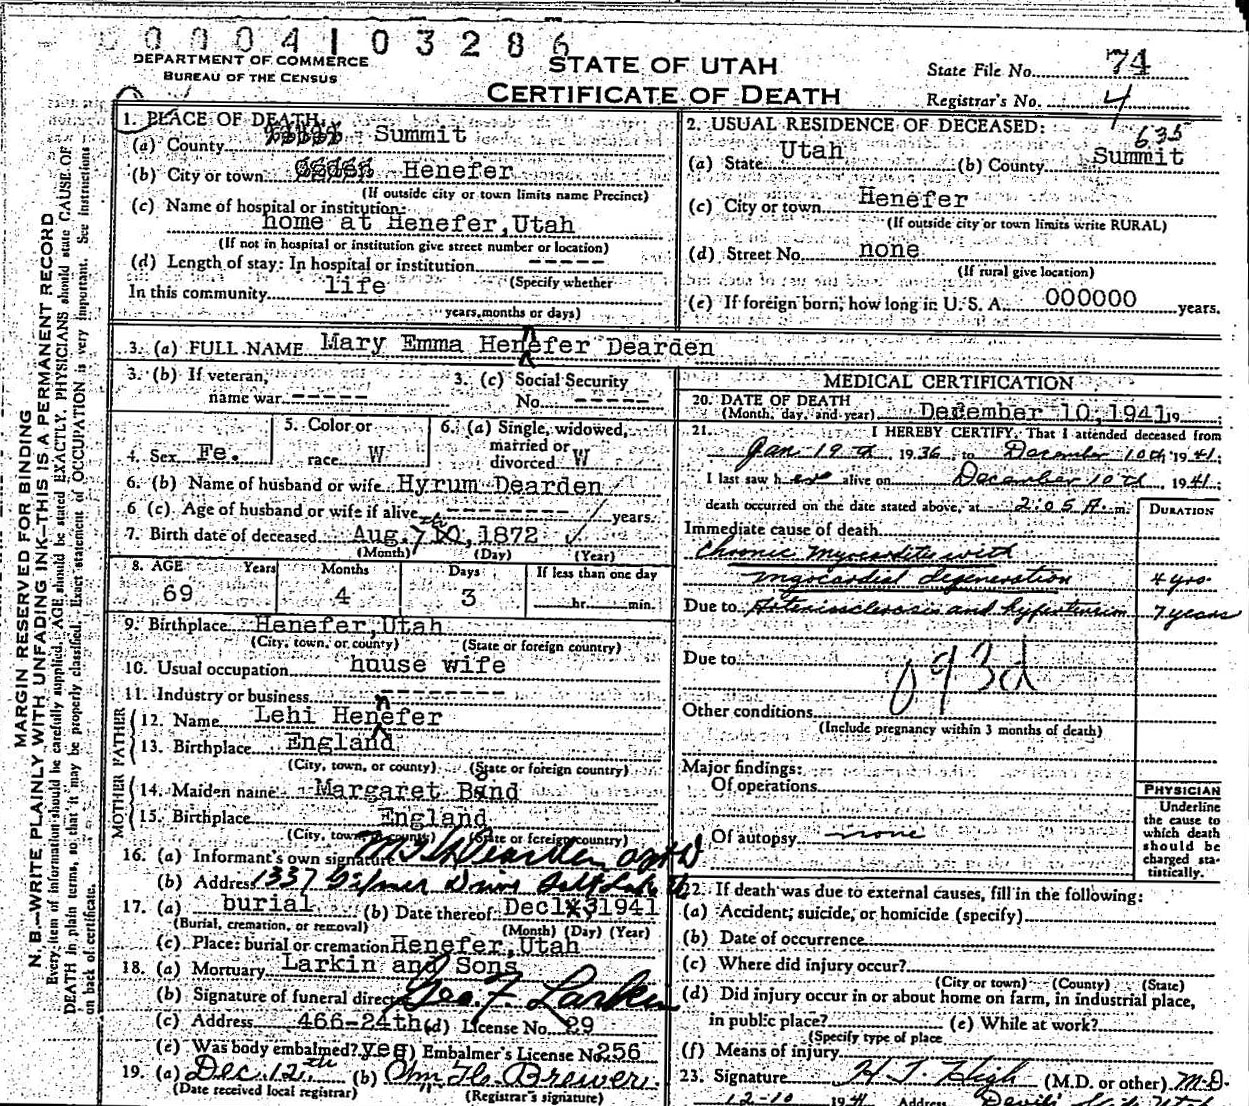 0004103286
DEPARTMENT OF COMMERCE
BUREAU OF THE CENSUS
STATE OF UTAH
CERTIFICATE OF DEATH
State File No. 74
Registrar's No. 4
MARGIN RESERVED FOR BINDING
N. B.—WRITE PLAINLY, WITH UNFADING INK—THIS IS A PERMANENT RECORD
Every item of information should be carefully supplied. AGE should be stated EXACTLY. PHYSICIANS should state CAUSE OF
DEATH in plain terms, so that it may be properly classified. Exact statement of OCCUPATION is very important. See instructions
on back of certificate.
1. PLACE OF DEATH:
(a) County Summit
(b) City or town Ogden Henefer
(If outside city or town limits name Precinct)
(c) Name of hospital or institution:
home at Henefer, Utah
(If not in hospital or institution give street number or location)
(d) Length of stay: In hospital or institution -----
(Specify whether
In this community life
years, months or days)
2. USUAL RESIDENCE OF DECEASED:
635
(a) State Utah (b) County Summit
(c) City or town Henefer
(If outside city or town limits write RURAL)
(d) Street No. none
(If rural give location)
(e) If foreign born, how long in U. S. A. 000000 years.
3. (a) FULL NAME Mary Emma Hennefer Dearden
3. (b) If veteran,
name war -----
3. (c) Social Security
No. -----
4. Sex Fe.
5. Color or
race W
6. (a) Single, widowed,
married or
divorced W
6. (b) Name of husband or wife Hyrum Dearden
6 (c) Age of husband or wife if alive ---------- years
7. Birth date of deceased Aug. 7th 10, 1872
(Month) (Day) (Year)
8. AGE Years Months Days If less than one day
69 4 3 hr. min.
9. Birthplace Henefer, Utah
(City, town, or county) (State or foreign country)
10. Usual occupation house wife
11. Industry or business ----------
FATHER
12. Name Lehi Hennefer
13. Birthplace England
(City, town, or county) (State or foreign country)
MOTHER
14. Maiden name Margaret Bond
15. Birthplace England
(City, town, or county) (State or foreign country)
16. (a) Informant's own signature Dearden
(b) Address 1337 Gilmer Drive Salt Lake
17. (a) burial (b) Date thereof Dec 13 1941
(Burial, cremation, or removal) (Month) (Day) (Year)
(c) Place: burial or cremation Henefer, Utah
18. (a) Mortuary Larkin and Sons
(b) Signature of funeral director Geo. F Larkin
(c) Address 466-24th (d) License No. 29
(e) Was body embalmed? yes (f) Embalmer's License No. 256
19. (a) Dec. 12th (b) Wm H. Brewer.
(Date received local registrar) (Registrar's signature)
MEDICAL CERTIFICATION
20. DATE OF DEATH
(Month, day, and year) December 10, 1941 19
21. I HEREBY CERTIFY, That I attended deceased from
Jan 19th, 1936, to December 10th, 1941;
I last saw her alive on December 10th, 1941;
death occurred on the date stated above, at 2:05 A. m.
DURATION
Immediate cause of death
Chronic Myocarditis with
myocardial degeneration 4 yrs.
Due to Arteriosclerosis and hypertension 7 years
Due to
093d
Other conditions
(Include pregnancy within 3 months of death)
Major findings:
Of operations
Of autopsy none
PHYSICIAN
Underline
the cause to
which death
should be
charged sta-
tistically.
22. If death was due to external causes, fill in the following:
(a) Accident, suicide, or homicide (specify)
(b) Date of occurrence
(c) Where did injury occur?
(City or town) (County) (State)
(d) Did injury occur in or about home on farm, in industrial place,
in public place? (e) While at work?
(Specify type of place
(f) Means of injury
23. Signature H. J. High (M.D. or other) M.D.
12-10 1941 Address Devils Slide Utah